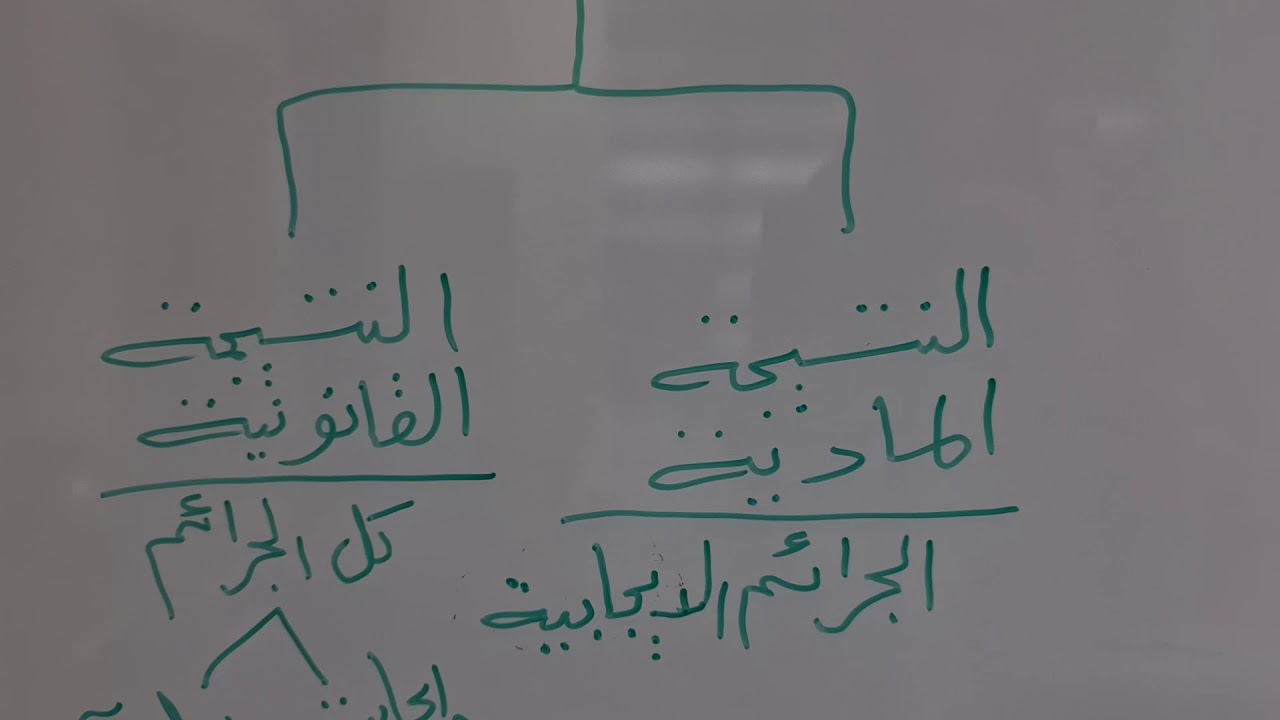 النتيجة
المادية
الجرائم الايجابية
النتيجة
القانونية
كل الجرائم